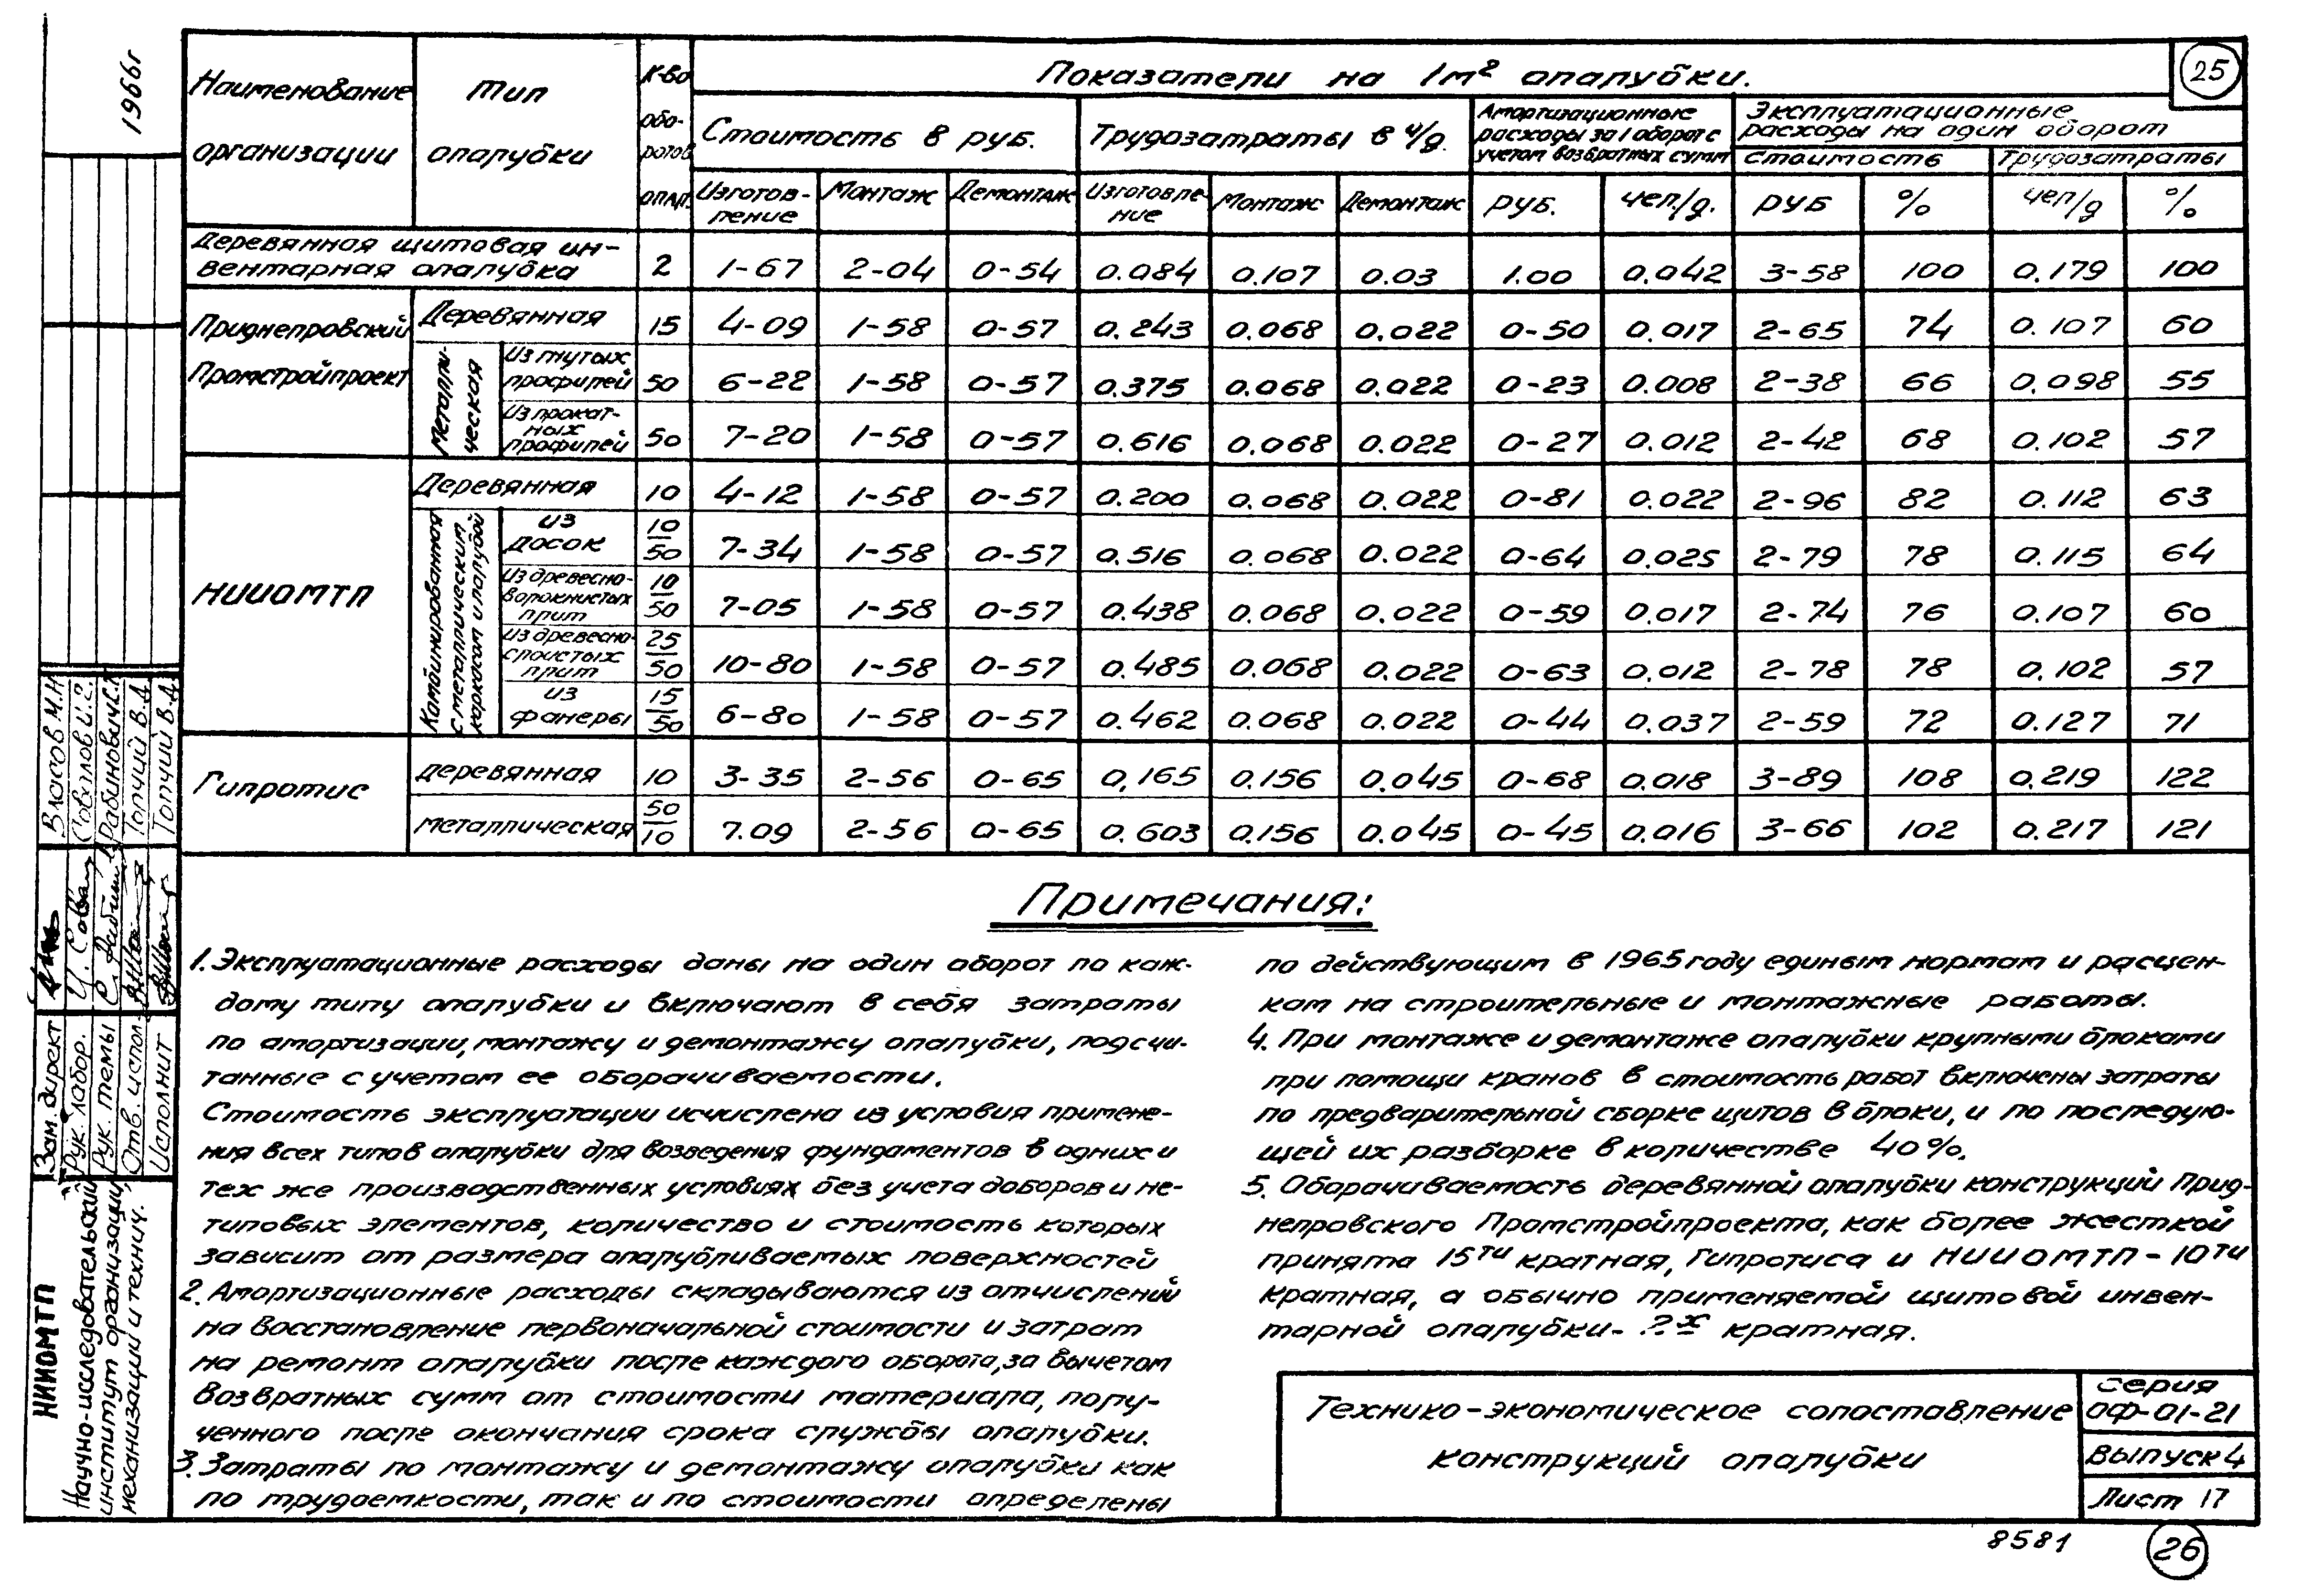 25
Наименование организации
Тип опалубки
К-во обо- ротов опал.
Показатели на 1м² опалубки.
Стоимость в руб.
Трудозатраты в ч/д.
Амортизационные расходы за 1 оборот с учетом возвратных сумм
Эксплуатационные расходы на один оборот
Стоимость
Трудозатраты
Изготов- ление Монтаж Демонтаж Изготовле- ние Монтаж Демонтаж руб. чел./д. руб % чел/д %
Деревянная щитовая ин- вентарная опалубка 2 1-67 2-04 0-54 0.084 0.107 0.03 1.00 0.042 3-58 100 0.179 100
Приднепровский Промстройпроект
Деревянная 15 4-09 1-58 0-57 0.243 0.068 0.022 0-50 0.017 2-65 74 0.107 60
Металли- ческая
Из гнутых профилей 50 6-22 1-58 0-57 0.375 0.068 0.022 0-23 0.008 2-38 66 0.098 55
Из прокат- ных профилей 50 7-20 1-58 0-57 0.616 0.068 0.022 0-27 0.012 2-42 68 0.102 57
НИИОМТП
Деревянная 10 4-12 1-58 0-57 0.200 0.068 0.022 0-81 0.022 2-96 82 0.112 63
Комбинированная с металлическим каркасом и палубой
из досок 10/50 7-34 1-58 0-57 0.516 0.068 0.022 0-64 0.025 2-79 78 0.115 64
Из древесно- волокнистых плит 10/50 7-05 1-58 0-57 0.438 0.068 0.022 0-59 0.017 2-74 76 0.107 60
Из древесно- слоистых плит 25/50 10-80 1-58 0-57 0.485 0.068 0.022 0-63 0.012 2-78 78 0.102 57
из фанеры 15/50 6-80 1-58 0-57 0.462 0.068 0.022 0-44 0.037 2-59 72 0.127 71
Гипротис
деревянная 10 3-35 2-56 0-65 0,165 0.156 0.045 0-68 0.018 3-89 108 0.219 122
металлическая 50/10 7.09 2-56 0-65 0.603 0.156 0.045 0-45 0.016 3-66 102 0.217 121
Примечания:
1. Эксплуатационные расходы даны на один оборот по каж-
дому типу опалубки и включают в себя затраты
по амортизации, монтажу и демонтажу опалубки, подсчи-
танные с учетом ее оборачиваемости.
Стоимость эксплуатации исчислена из условия примене-
ния всех типов опалубки для возведения фундаментов в одних и
тех же производственных условиях без учета доборов и не-
типовых элементов, количество и стоимость которых
зависит от размера опалубливаемых поверхностей
2. Амортизационные расходы складываются из отчислений
на восстановление первоначальной стоимости и затрат
на ремонт опалубки после каждого оборота, за вычетом
возвратных сумм от стоимости материала, полу-
ченного после окончания срока службы опалубки.
3. Затраты по монтажу и демонтажу опалубки как
по трудоемкости, так и по стоимости определены
по действующим в 1965 году единым нормам и расцен-
кам на строительные и монтажные работы.
4. При монтаже и демонтаже опалубки крупными блоками
при помощи кранов в стоимость работ включены затраты
по предварительной сборке щитов в блоки, и по последую-
щей их разборке в количестве 40%.
5. Оборачиваемость деревянной опалубки конструкций Прид-
непровского Промстройпроекта, как более жесткой
принята 15ти кратная, Гипротиса и НИИОМТП - 10ти
кратная, а обычно применяемой щитовой инвен-
тарной опалубки - 2х кратная.
Технико-экономическое сопоставление
конструкций опалубки
серия
ОФ-01-21
выпуск 4
Лист 17
8581
26
1966г
Власов М.Н.
Рабинович С.Г.
Топчий В.Д.
Топчий В.Д.
Зам. директ
Рук. лабор.
Рук. темы
Отв. испол.
Исполнит
НИИОМТП
Научно-исследовательский
институт организации,
механизации и технич.